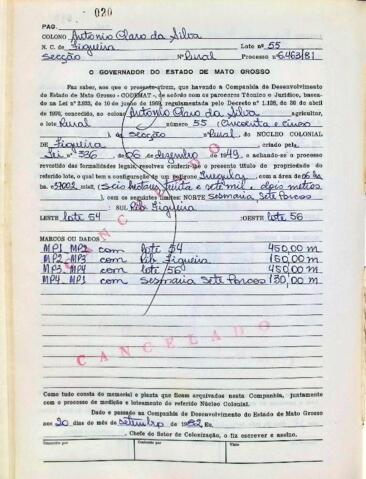 - 020
PAG
COLONO Antônio Claro da Silva
N. C. de Figueira Lote nº 55
Secção Nº Rural Processo nº 6.463/81
O GOVERNADOR DO ESTADO DE MATO GROSSO
Faz saber, aos que o presente virem, que havendo a Companhia de Desenvolvimento
do Estado de Mato Grosso - CODEMAT -, de acôrdo com os pareceres Técnico e Jurídico, basea-
do na Lei nº 2.833, de 10 de junho de regulamentada pelo Decreto nº 1.138, de 30 de abril
de 1970, concedido, ao colono Antônio Claro da Silva agricultor,
o lote Rural número 55 (Cincoenta e Cinco
), da Secção Nº Rural, do NÚCLEO COLONIAL
DE Figueira criado pela
Lei nº 336, de 06 de dezembro de 1949, e achando-se o processo
revestido das formalidades legais, resolveu conferir-lhe o presente título de propriedade do
referido lote, o qual tem a configuração de um polígono Irregular, com a área de 06 ha
37002 m2, (Seis hectares, trinta e sete mil, dois metros
), com os seguintes limites: NORTE Sesmaria Sete Porcos
SUL Rib. Figueira
LESTE lote 54 OESTE lote 56
MARCOS OU DADOS
MP1 MP2 com lote 54 450,00 m
MP2 - MP3 com Rib. Figueira 150,00 m
MP3 MP4 com lote 56 450,00 m
MP4 - MP1 com Sesmaria Sete Porcos 130,00 m
CANCELADO
CANCELADO
Como tudo consta do memorial e planta que ficam arquivados nesta Companhia, juntamente
com o processo de medição e loteamento do referido Núcleo Colonial.
Dado e passado na Companhia de Desenvolvimento do Estado de Mato Grosso
aos 20 dias do mês de setembro de 1982 Eu,
, Chefe do Setor de Colonização, o fiz escrever e assino.
Conferido por Visto